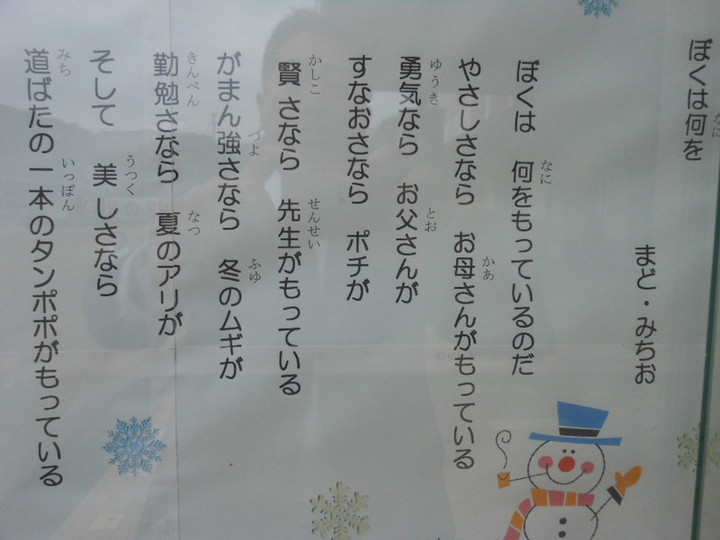 ぼくは何を
まど・みちお
ぼくは　何をもっているのだ
やさしさなら　お母さんがもっている
勇気なら　お父さんが
すなおさなら　ポチが
賢さなら　先生がもっている
がまん強さなら　冬のムギが
勤勉さなら　夏のアリが
そして　美しさなら
道ばたの一本のタンポポがもっている